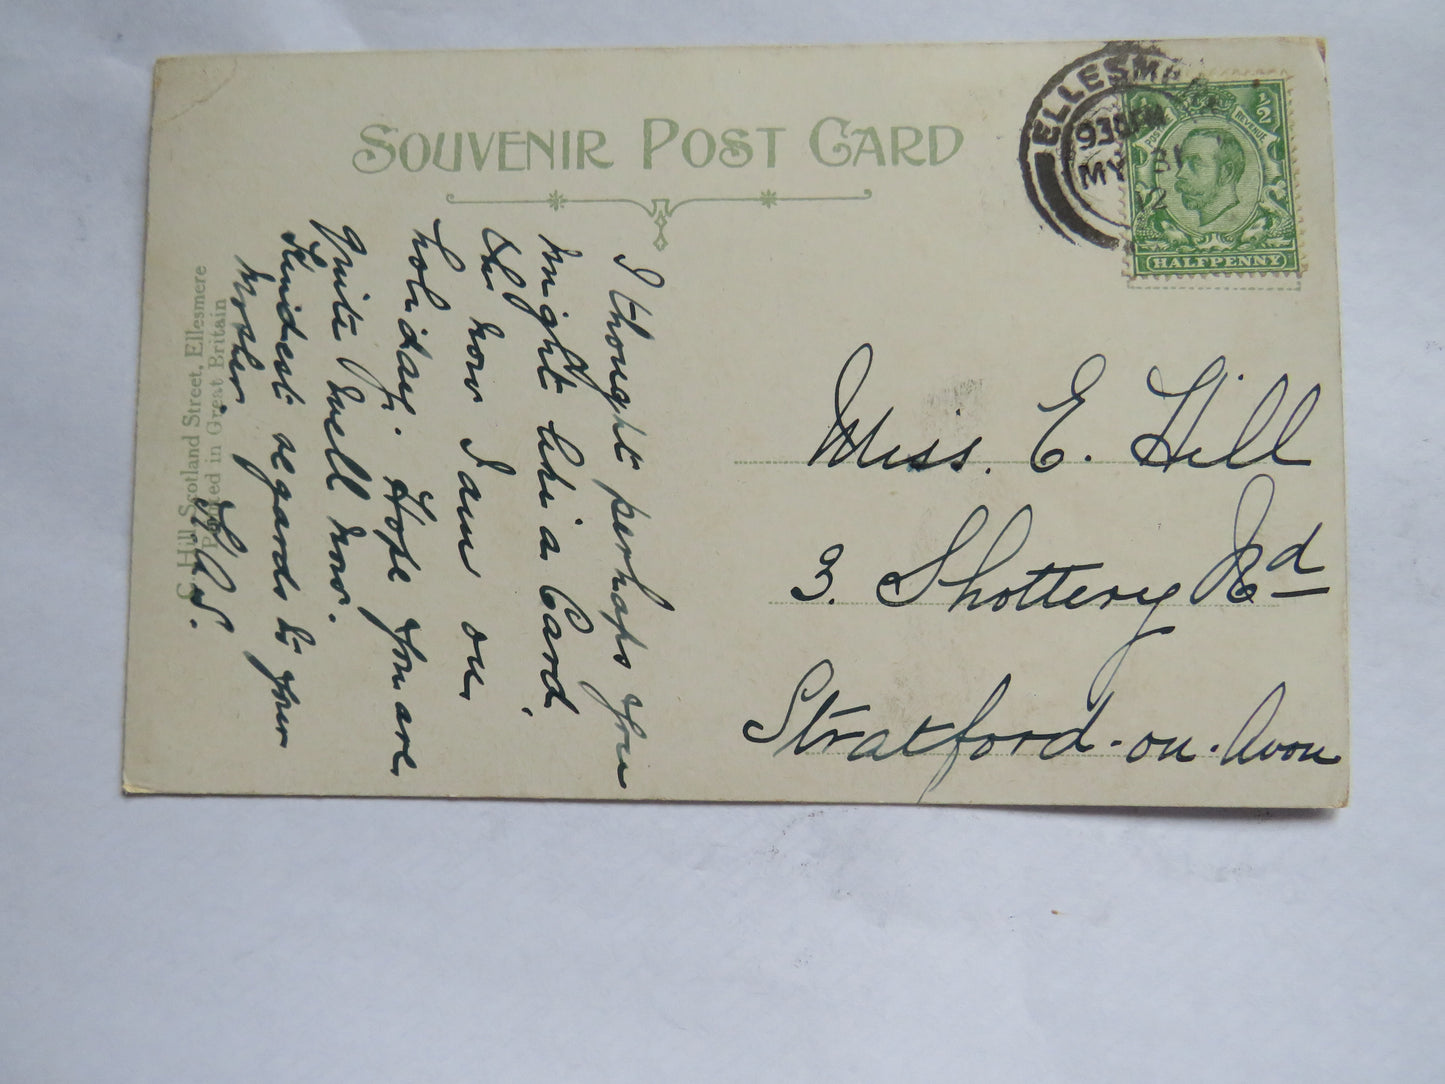 SOUVENIR POST CARD
ELLESMERE
930AM
MY 31
12
½
POSTAGE
REVENUE
HALFPENNY
I thought perhaps you
might like a Card.
now I am on
holiday. Hope you are
quite well now.
Kindest regards to your
Mother.
C. Hill Scotland Street, Ellesmere
Printed in Great Britain
Miss. E. Hill
3. Shottery Rd
Stratford-on-Avon